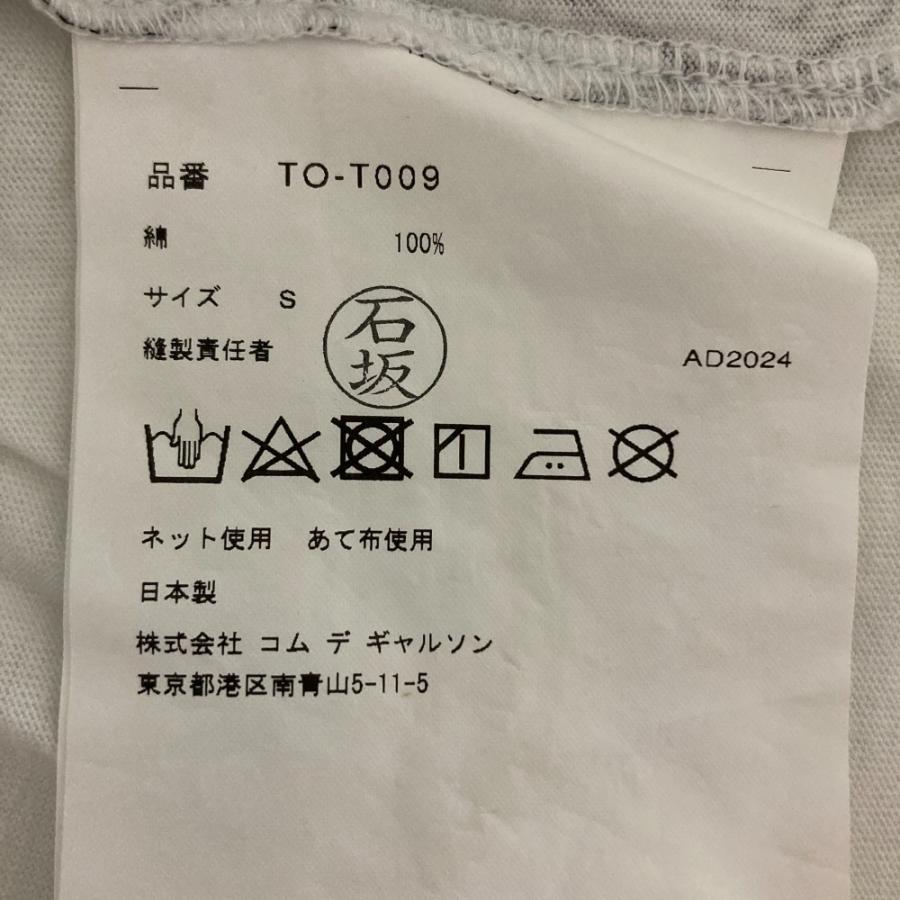 品番 TO-T009
綿 100%
サイズ S
縫製責任者 石坂 AD2024
ネット使用 あて布使用
日本製
株式会社 コム デ ギャルソン
東京都港区南青山5-11-5